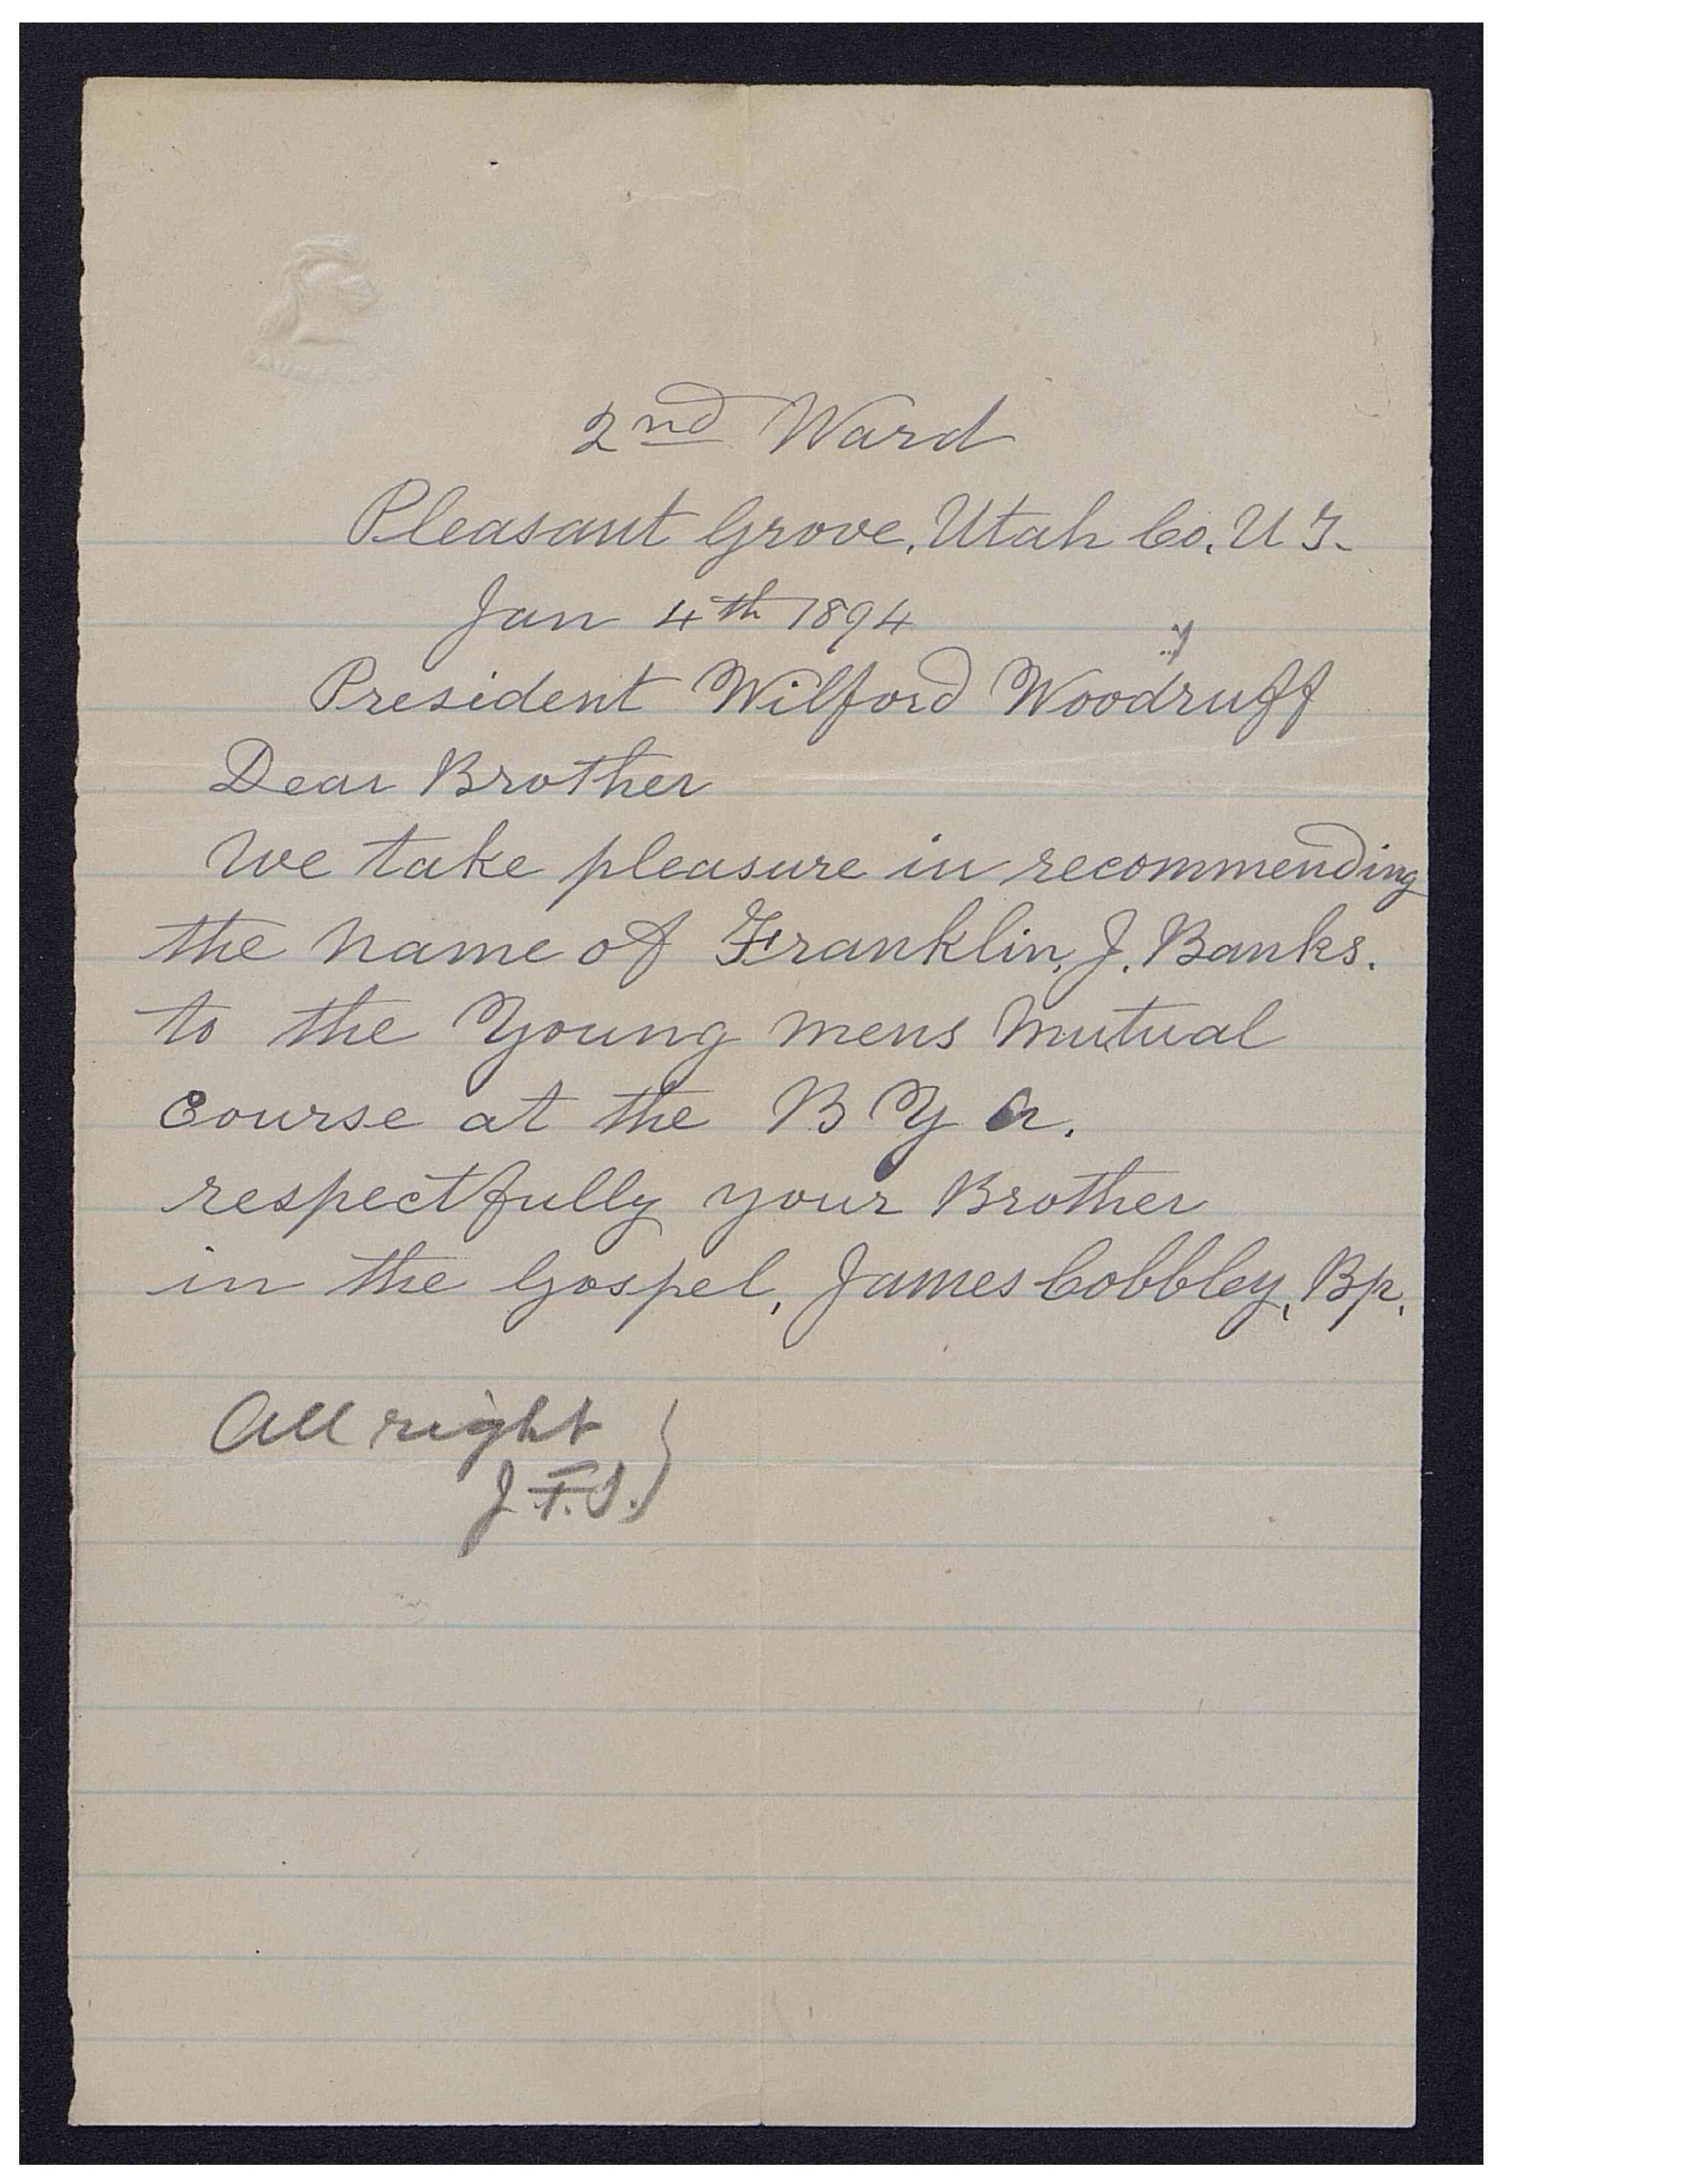 2nd Ward
Pleasant Grove, Utah Co. U T.
Jan 4th 1894
President Wilford Woodruff
Dear Brother
We take pleasure in recommending
the name of Franklin, J. Banks.
to the Young mens Mutual
Course at the B Y A.
respectfully your Brother
in the Gospel, James Cobbley, Bp.
All right
J. F. S.